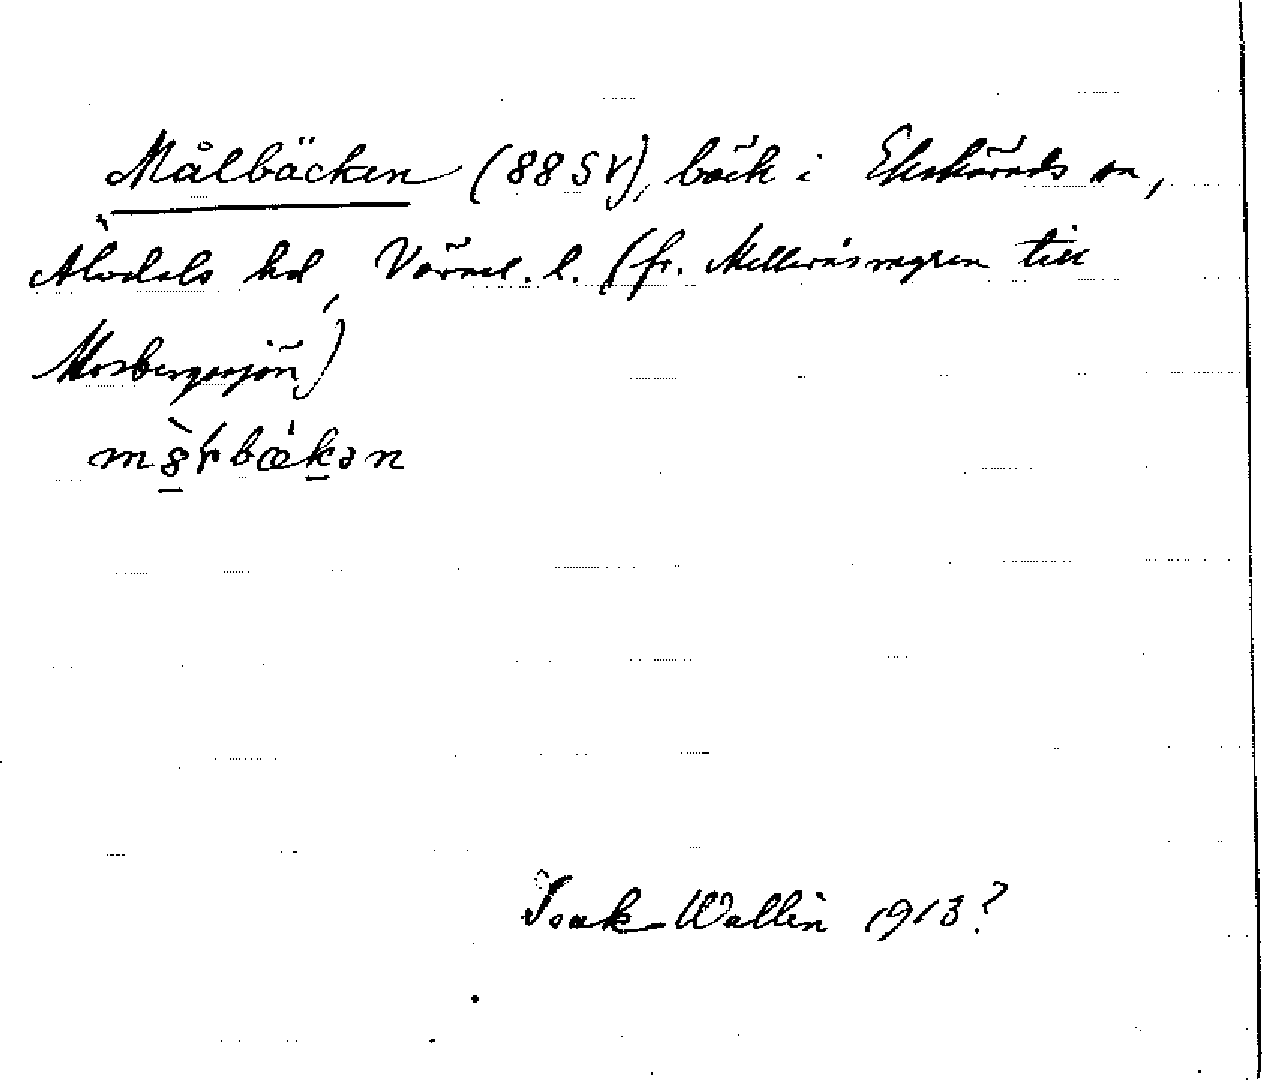 Målbäcken (88 SV), bäck i Ekshärads sn,
Älvdals hd, Värml. l. (fr. till
Mosbergssjön)
Isak Wallin 1913?